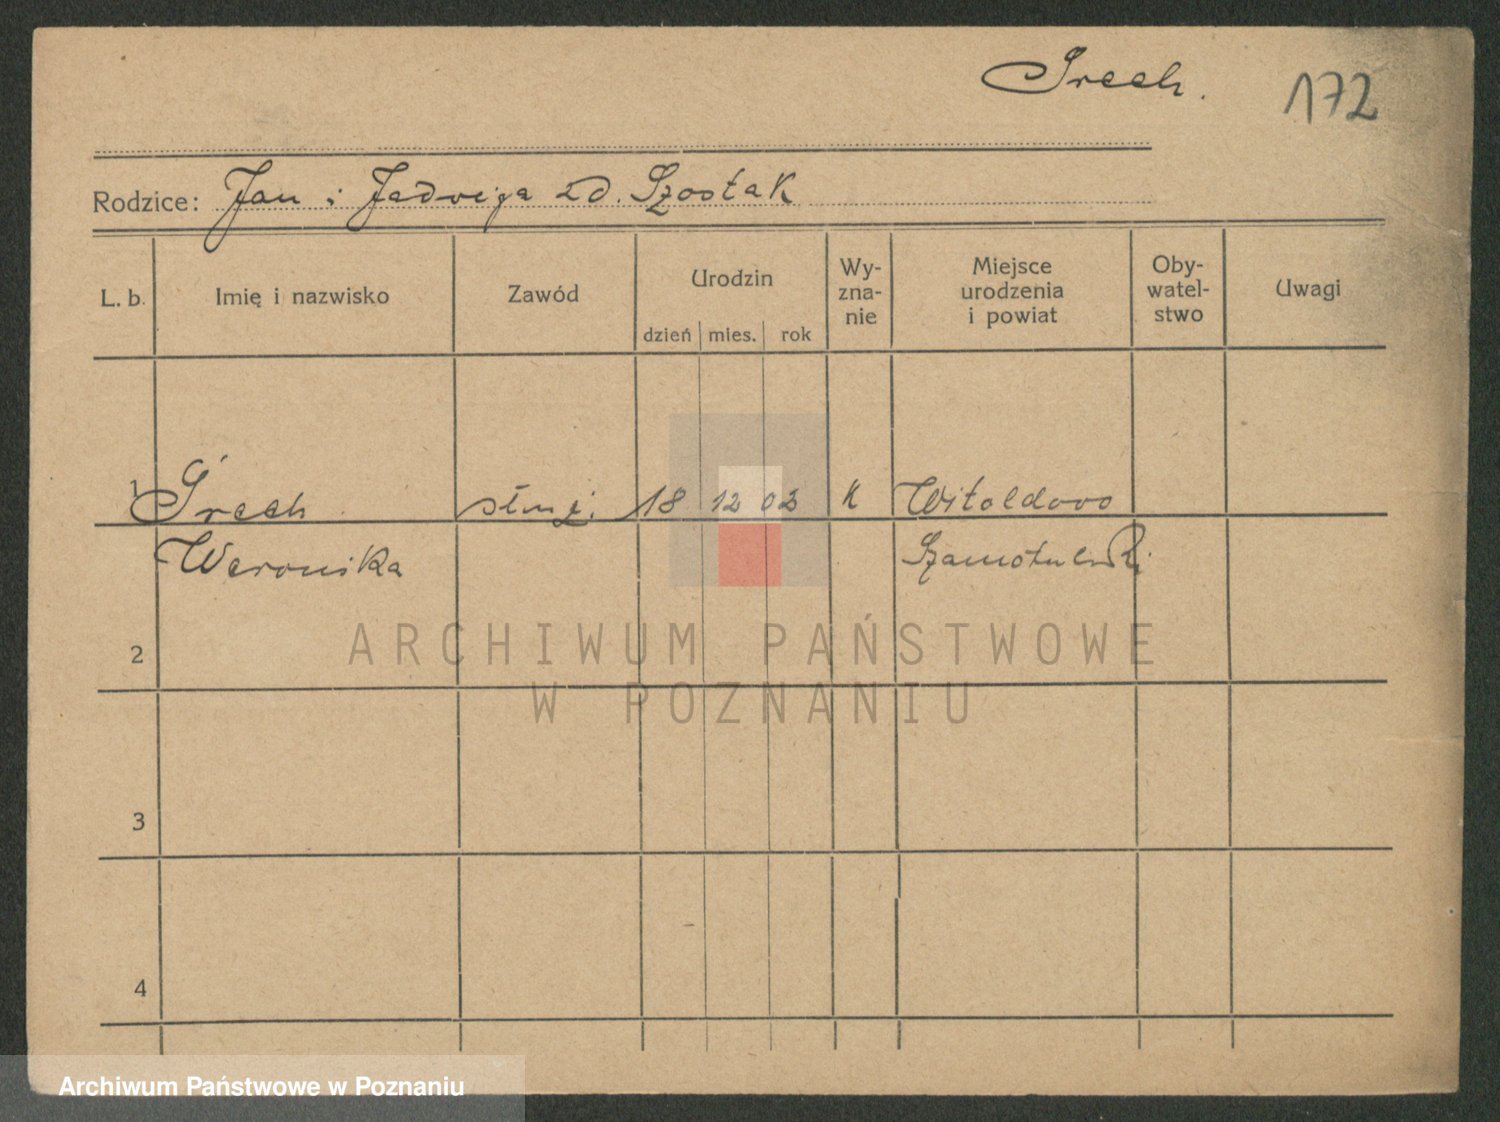 Śrech.
172
Rodzice: Jan i Jadwiga zd. Szostak
L. b.
Imię i nazwisko
Zawód
Urodzin
dzień mies. rok
Wy-
zna-
nie
Miejsce
urodzenia
i powiat
Oby-
watel-
stwo
Uwagi
1 Śrech służ. 18 12 03 K Witoldowo
Weronika Szamotulski
2
3
4
ARCHIWUM PAŃSTWOWE
W POZNANIU
Archiwum Państwowe w Poznaniu